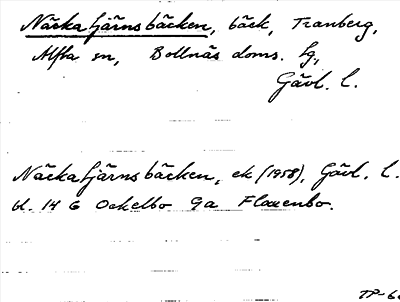 Näckatjärnsbäcken, bäck, Tranberg,
Alfta sn, Bollnäs doms. lg,
Gävl. l.
Näckatjärnsbäcken, ek (1958), Gävl. l.
bl. 14 G Ockelbo 9a Flaxenbo.